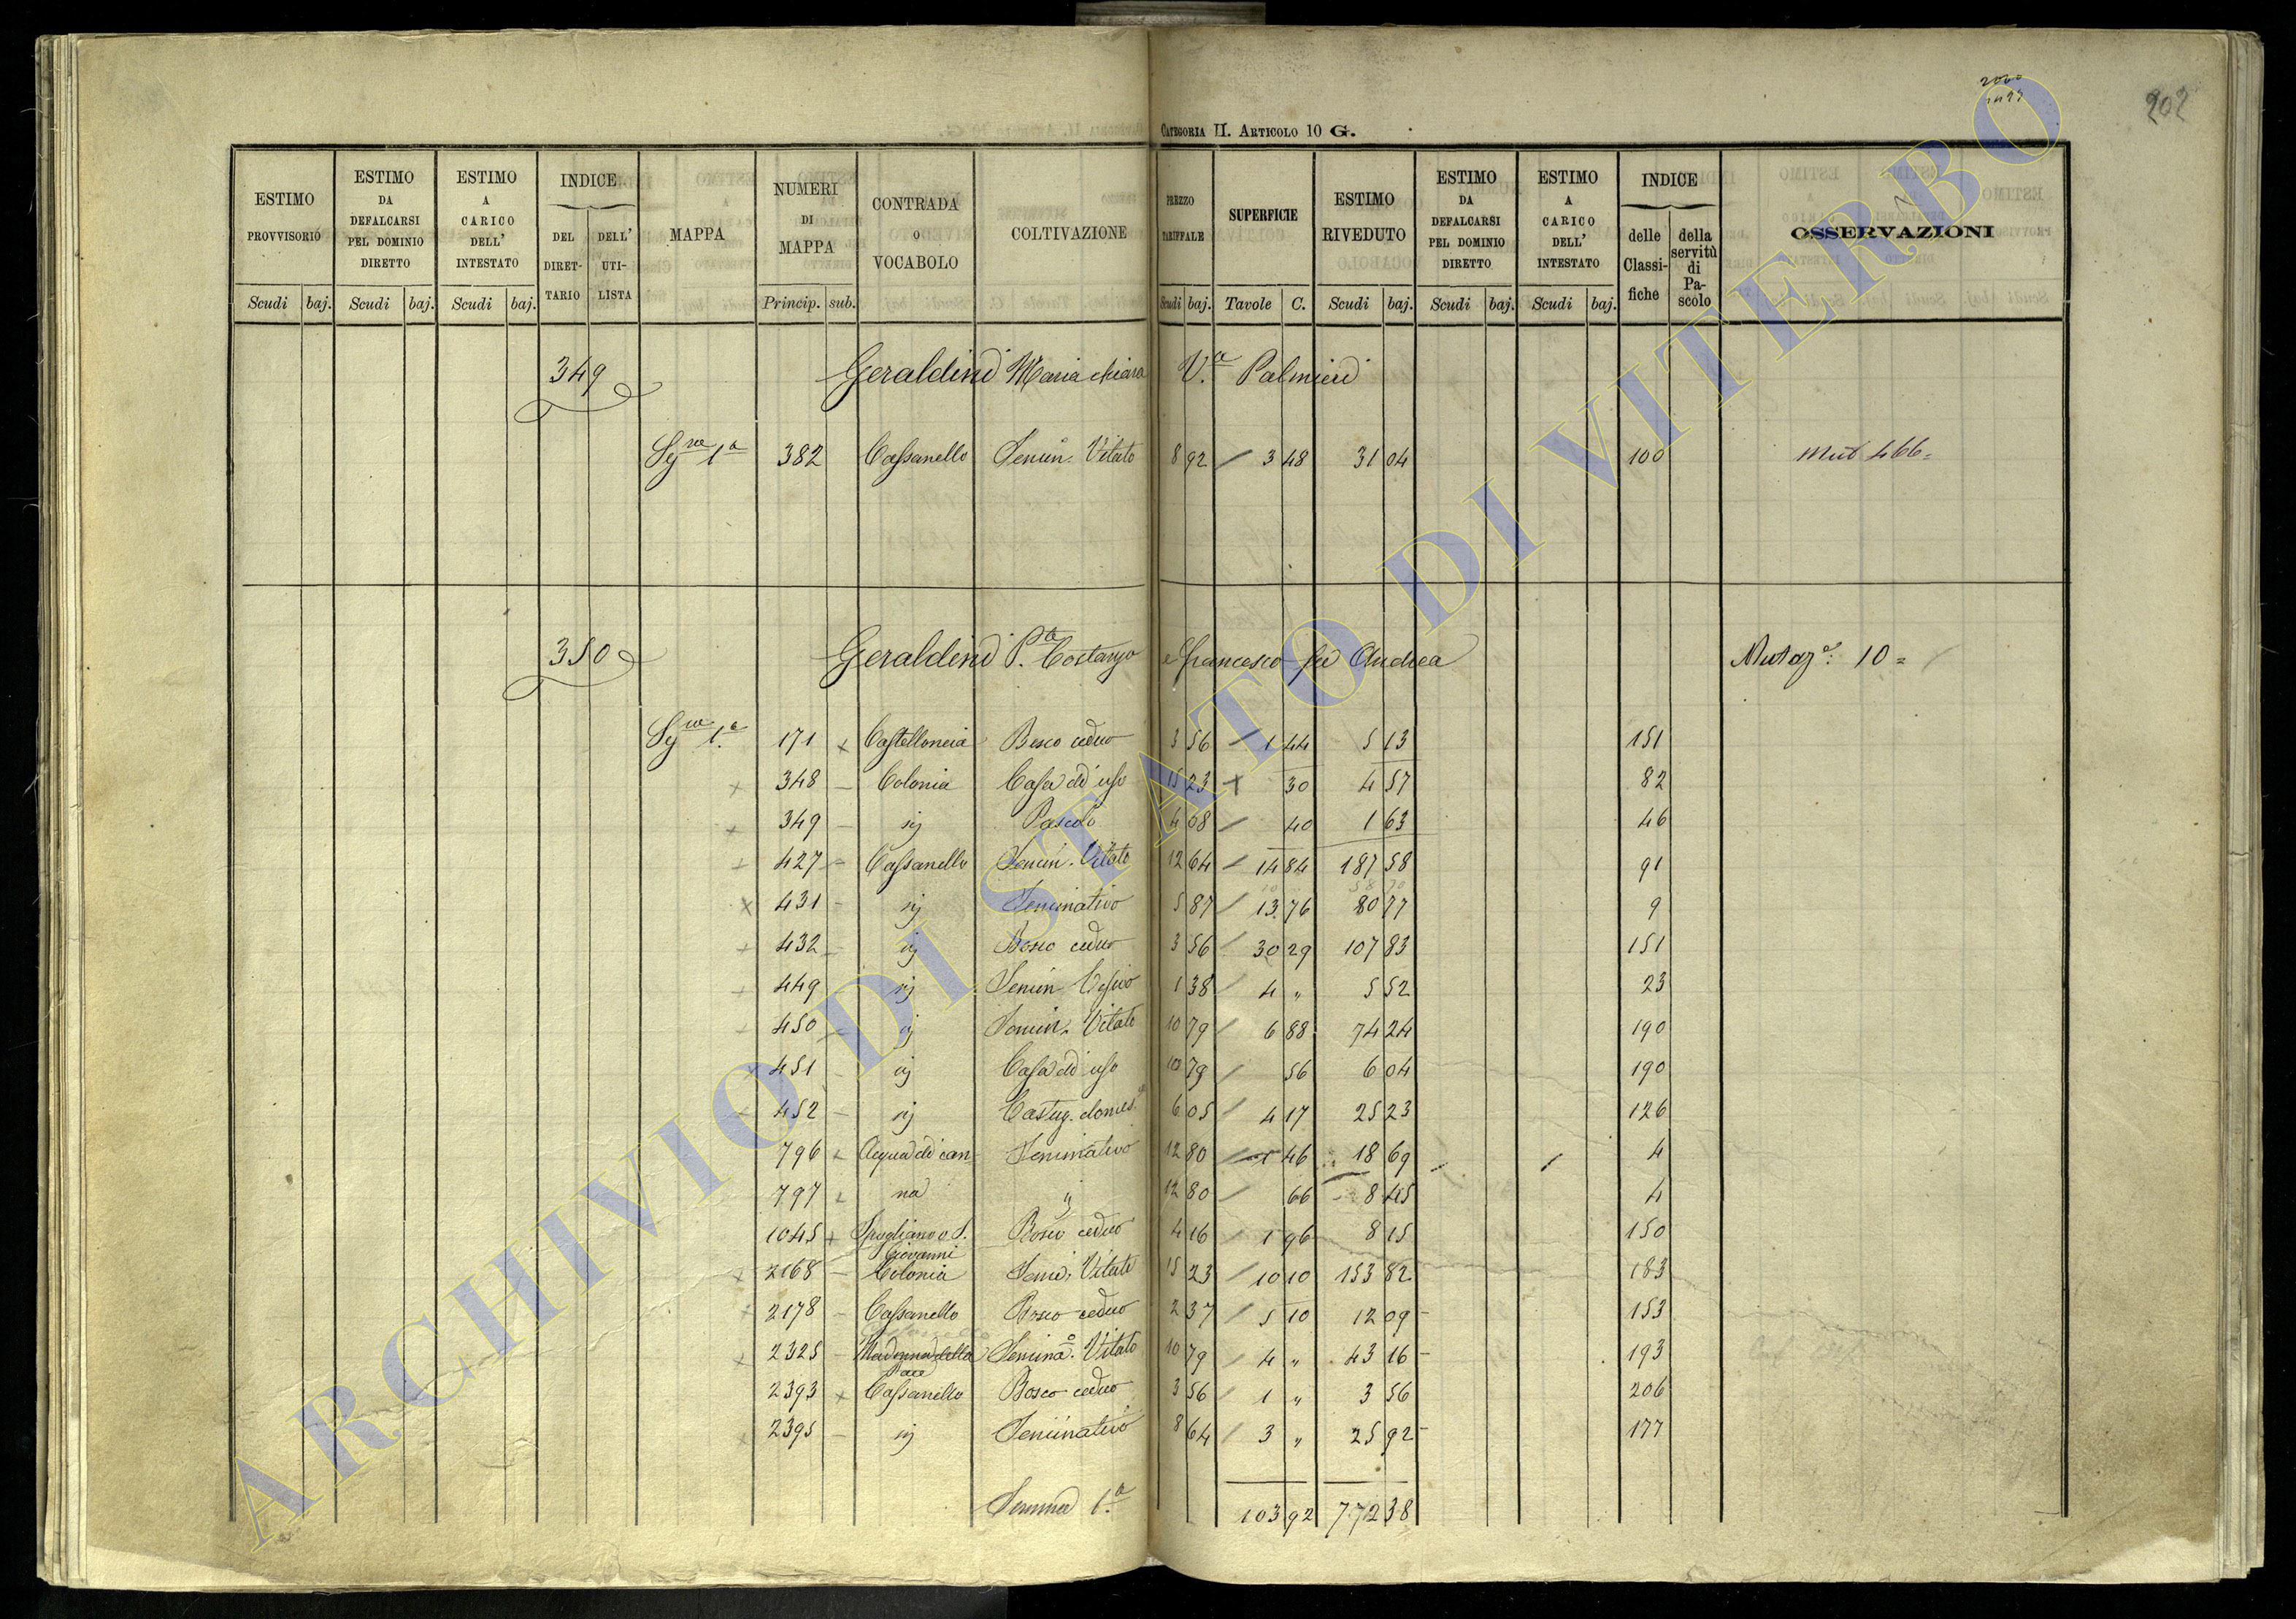 2000
202
CATEGORIA II. ARTICOLO 10 G.
ESTIMO PROVVISORIO Scudi baj. ESTIMO DA DEFALCARSI PEL DOMINIO DIRETTO Scudi baj. ESTIMO A CARICO DELL' INTESTATO Scudi baj. INDICE DEL DIRET-TARIO DELL' UTI-LISTA MAPPA NUMERI DI MAPPA Princip. sub. CONTRADA O VOCABOLO COLTIVAZIONE PREZZO TARIFFALE Scudi baj. SUPERFICIE Tavole C. ESTIMO RIVEDUTO Scudi baj. ESTIMO DA DEFALCARSI PEL DOMINIO DIRETTO Scudi baj. ESTIMO A CARICO DELL' INTESTATO Scudi baj. INDICE delle Classi-fiche della servitù di Pa-scolo OSSERVAZIONI
349 Geraldini Maria chiara V.a Palmieri
Sy.ne 1a 382 Cassanello Semin. Vitato 8 92 / 3 48 31 04 100 Mut 466=
350 Geraldini P.te Costanzo e Francesco fu Andrea Mutaz.e: 10=
Sy.ne 1.a 171 x Castelloncia Bosco ceduo 3 56 / 1 44 5 13 151
x 348 – Colonia Casa di uso 15 23 x 30 4 57 82
x 349 – sij Pascolo 4 08 / 40 1 63 46
x 427 – Cassanello Semin. Vitato 12 64 / 14 84 187 58 91
x 431 – sij Seminativo 5 87 / 13 76 80 77 9
x 432 – sij Bosco ceduo 3 56 / 30 29 107 83 151
x 449 – sij Semin 1 38 / 4 " 5 52 23
x 450 – sij Semin. Vitato 10 79 / 6 88 74 24 190
x 451 – sij Casa di uso 10 79 / 56 6 04 190
x 452 – sij Castag. domes. 6 05 / 4 17 25 23 126
796 x Acqua di can- Seminativo 12 80 / 1 46 18 69 4
797 x na " 12 80 / 66 8 45 4
1045 x Spogliano o S. Bosco ceduo 4 16 / 1 96 8 15 150
Giovanni
x 2168 – Colonia Semi. Vitato 15 23 / 10 10 153 82 183
x 2178 – Cassanello Bosco ceduo 2 37 / 5 10 12 09 – 153
x 2325 – Madonna della Semina.o Vitato 10 79 / 4 " 43 16 – 193
Pace
2393 x Cassanello Bosco ceduo 3 56 / 1 " 3 56 206
x 2395 – sij Seminativo 8 64 / 3 " 25 92 – 177
Somma 1.a 103 92 772 38
ARCHIVIO DI STATO DI VITERBO